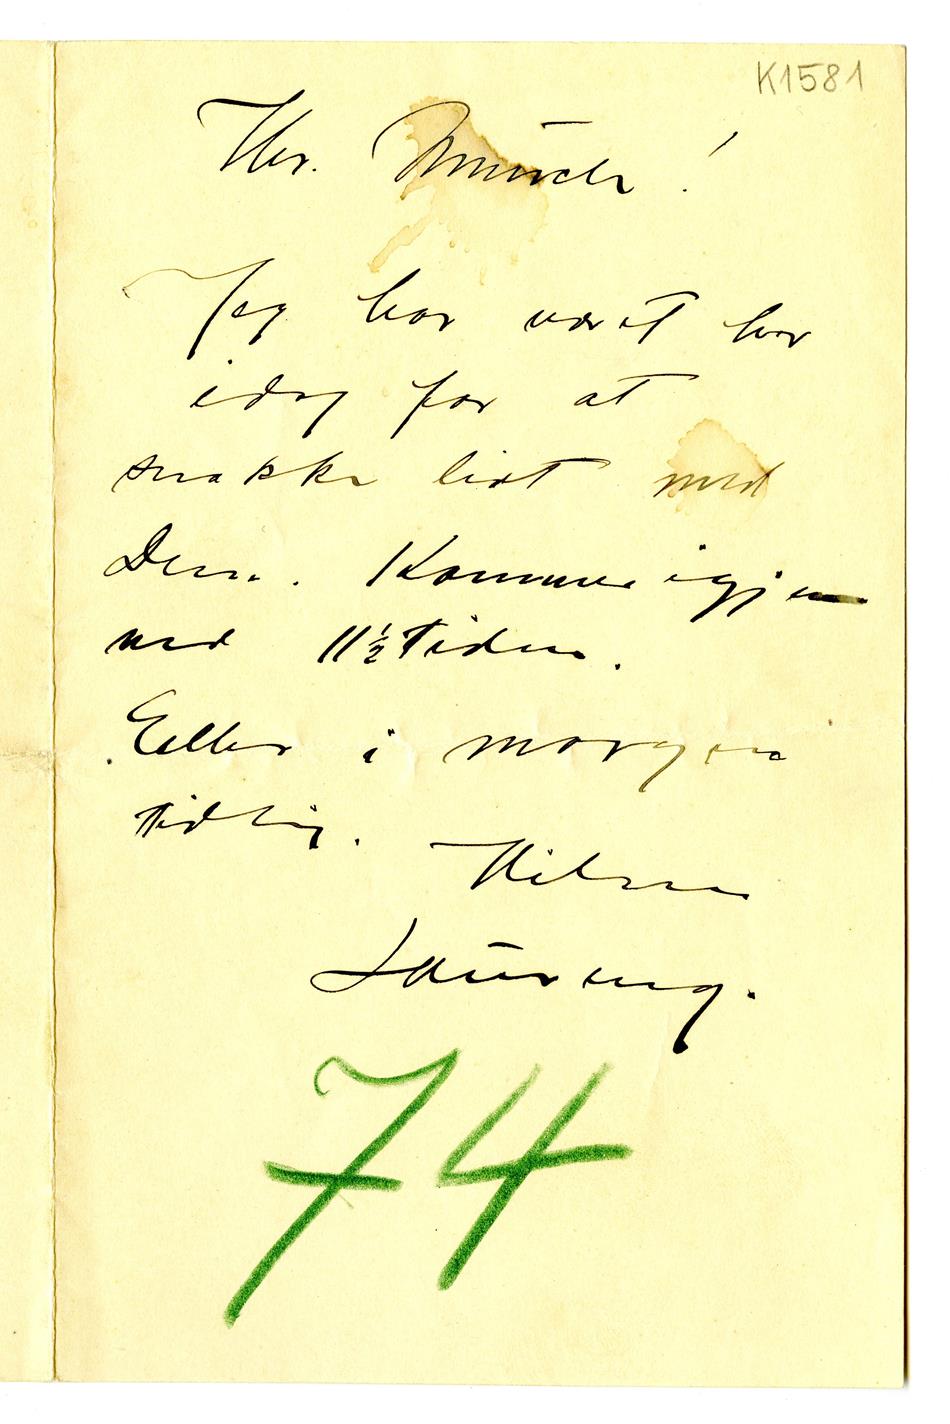 K1581
Hr. Munch!
Jeg har været her
idag for at
snakke lidt med
Dem. Kommer igjen
ved 11½ Tiden.
Eller i morgen
tidlig.
Hilsen
Lauring.
74